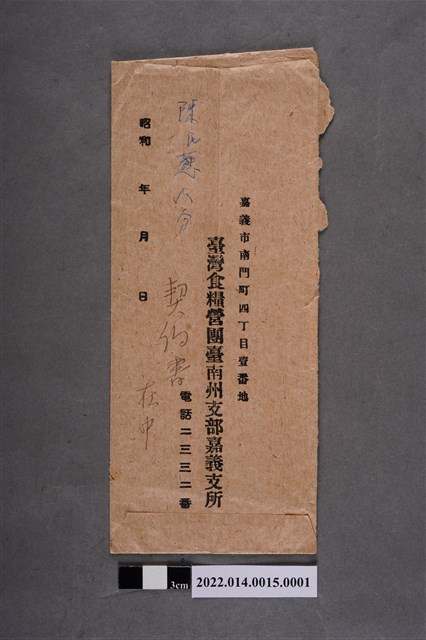 嘉義市南門町四丁目壹番地
臺灣食糧營團臺南州支部嘉義支所
電話二三三二番
契約書
在中
昭和 年 月 日
3cm
2022.014.0015.0001